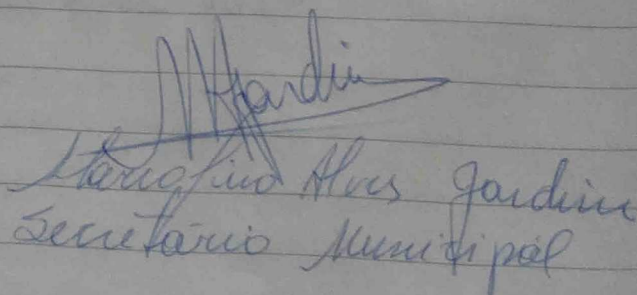 MAJardim
Mariofino Alves Jardim
Secretário Municipal